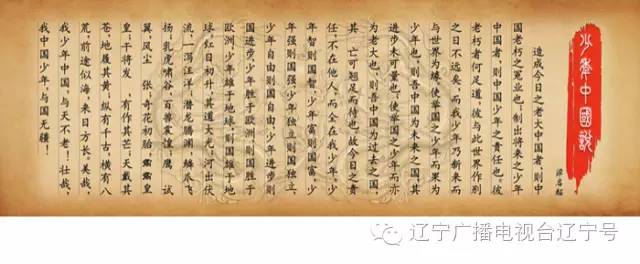 少年中國說
梁启超
造成今日之老大中国者,则中
国老朽之冤业也;制出将来之少年
中国者,则中国少年之责任也。彼
老朽者何足道,彼与此世界作别
之日不远矣,而我少年乃新来而
与世界为缘。使举国之少年而果为
少年也,则吾中国为未来之国,其
进步未可量也;使举国之少年而亦
为老大也,则吾中国为过去之国,
其 亡可翘足而待也。故今日之责
任,不在他人,而全在我少年。少
年智则国智,少年富则国富,少
年强则国强,少年独立则国独立,
少年自由则国自由,少年进步则
国进步,少年胜于欧洲则国胜于
欧洲,少年雄于地球则国雄于地
球。红日初升,其道大光;河出伏
流,一泻汪洋;潜龙腾渊,鳞爪飞
扬;乳虎啸谷,百兽震惶;鹰 试
翼,风尘 张;奇花初胎,霱霱皇
皇;干将发 ,有作其芒;天戴其
苍,地履其黄;纵有千古,横有八
荒;前途似海,来日方长。美哉,
我少年中国,与天不老!壮哉,
我中国少年,与国无疆!
辽宁广播电视台辽宁号